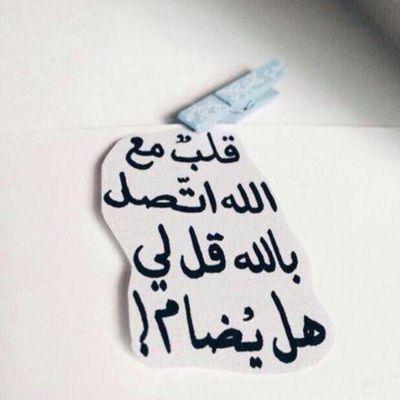 قلبٌ مع
الله اتّصل
بالله قل لي
هل يُضام!